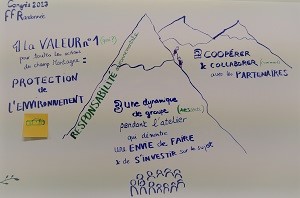 Congrès 2023
FF Randonnée
1) La VALEUR n°1
pour toutes les actions
du champ Montagne :
PROTECTION
de
L'ENVIRONNEMENT
RESPONSABILITÉ
2) COOPÉRER
& COLLABORER
avec les PARTENAIRES
3) Une dynamique
de groupe
pendant l'atelier
qui démontre
une ENVIE de FAIRE
& de S'INVESTIR sur le sujet